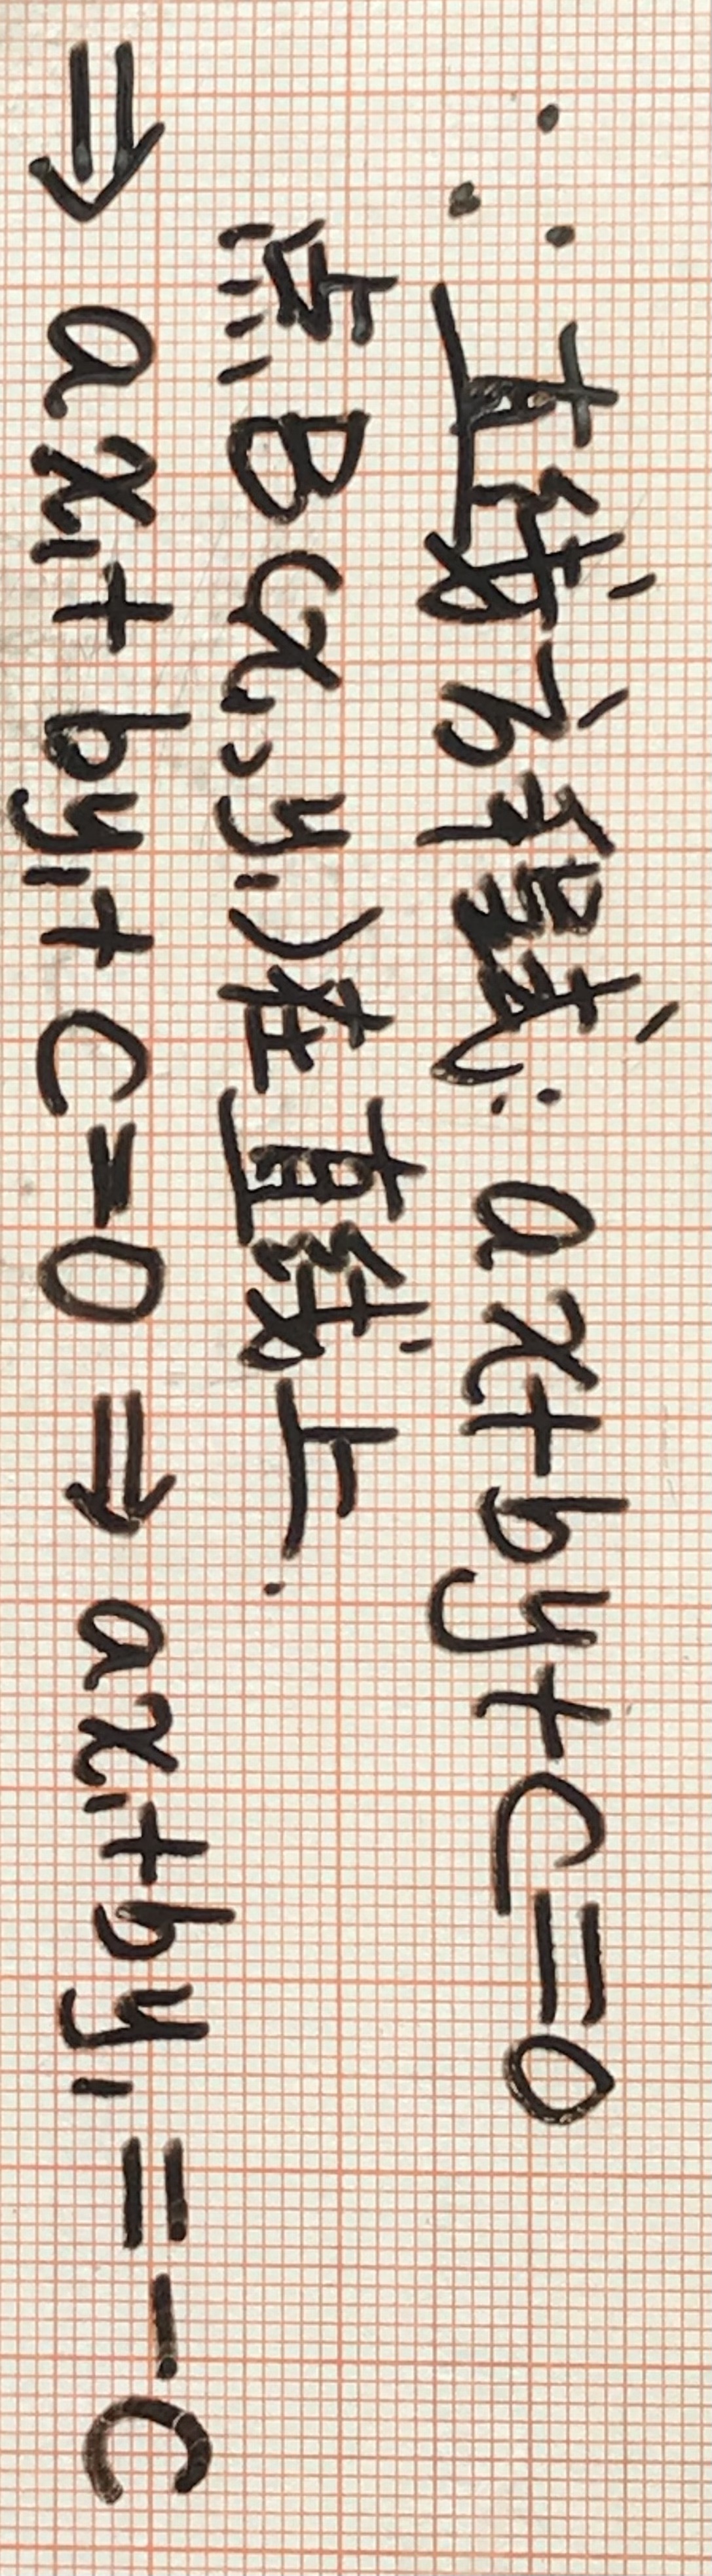 ∵ 直线方程式: ax+by+c=0
点B(x₁,y₁)在直线上.
⇒ ax₁+by₁+c=0 ⇒ ax₁+by₁=-c